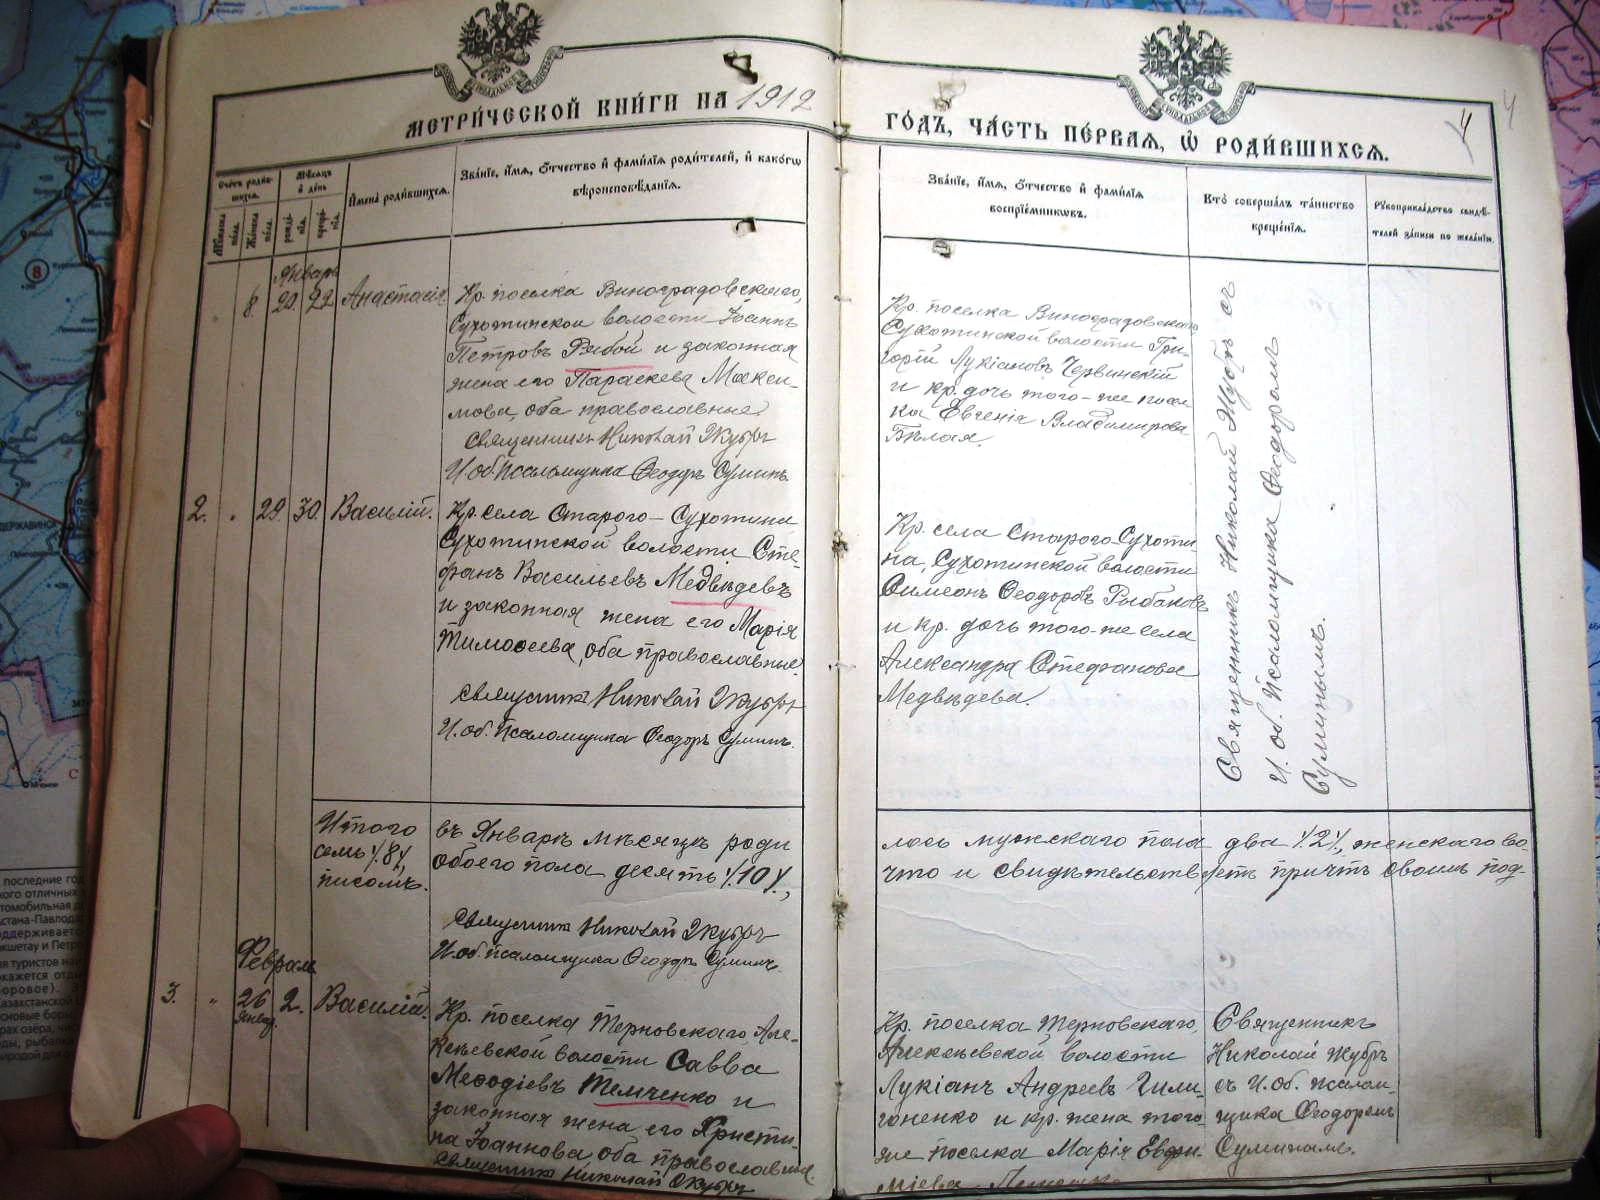 МЕТРИ́ЧЕСКОЙ КНИ́ГИ НА 1912
ГО́ДЪ, ЧА́СТЬ ПЕ́РВАЯ, Ѡ РОДИ́ВШИХСЯ.
4
4
Счетъ роди́вшихся.
Мѣсяцъ и день
Имена̀ роди́вшихся.
Зва́нїе, и́мя, ѻ́тчество и҆ фами́лїя роди́телей, и҆ како́гѡ
вѣроисповѣ́данїя.
Му́жеска по́ла.
Же́нска по́ла.
рожде́нїя.
креще́нїя.
Зва́нїе, и́мя, ѻ́тчество и҆ фами́лїя
воспрїе́мникѡвъ.
Кто̀ соверша́лъ та́инство
креще́нїя.
Рꙋкоприкла́дство свидѣ́-
телей за́писи по жела́нїю.
Январь
8. 20. 22. Анастасія
Кр. поселка Виноградовскаго,
Сухотинской волости Іоаннъ
Петровъ Рябой и законная
жена его Параскева Макси-
мова, оба православные.
Священникъ Николай Жубръ
И. об. Псаломщика Ѳеодоръ Суминъ.
Кр. поселка Виноградовскаго
Сухотинской волости Гри-
горій Лукіановъ Червинскій
и кр. дочь того-же посел
ка Евгенія Владимирова
Бѣлая.
Священникъ Николай Жубръ съ
И. об. Псаломщика Ѳеодоромъ
Суминымъ.
2. " 29. 30. Василій.
Кр. села Старого-Сухотина
Сухотинской волости Сте-
фанъ Васильевъ Медвѣдевъ
и законная жена его Марія
Тимоѳеева, оба православные.
Священникъ Николай Жубръ
И. об. Псаломщика Ѳеодоръ Суминъ.
Кр. села Старого-Сухоти-
на, Сухотинской волости
Симеонъ Ѳеодоровъ Рыбаковъ
и кр. дочь того-же села
Александра Стефанова
Медвѣдева.
Итого въ Январѣ мѣсяцѣ роди лось мужскаго пола два /.2/., женскаго во-
семь /.8/., обоего пола десять /.10/., что и свидѣтельствуетъ причтъ своимъ под-
писомъ.
Священникъ Николай Жубръ
И. об. псаломщика Ѳеодоръ Суминъ.
Февраль
3. " 26 Январ. 2. Василій.
Кр. поселка Терновскаго, Але-
ксѣевской волости Савва
Меѳодіевъ Темченко и
законная жена его Христи-
на Іоаннова оба православные.
Священникъ Николай Жубръ
Кр. поселка Терновскаго,
Алексѣевской волости
Лукіанъ Андреевъ Гили-
гоненко и кр. жена того-
же поселка Марія Евфи-
міева
Священникъ
Николай Жубръ
съ И. об. псалом-
щика Ѳеодоромъ
Суминымъ.